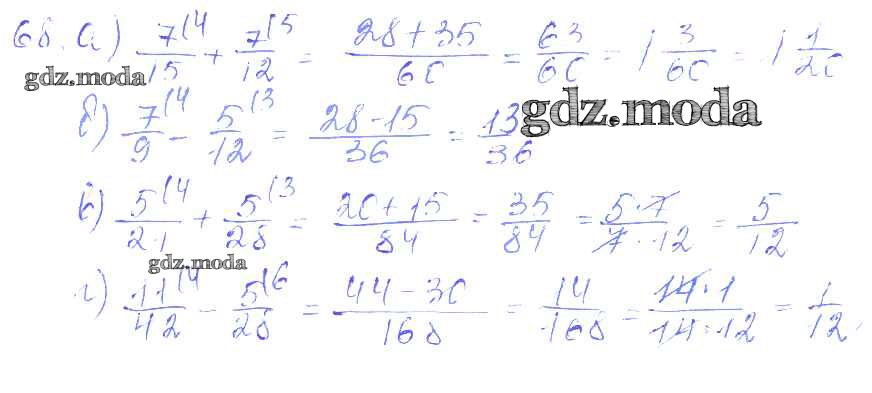 68. а) 7/15 (4 + 7/12 (5 = (28 + 35)/60 = 63/60 = 1 3/60 = 1 1/20
gdz.moda
б) 7/9 (4 − 5/12 (3 = (28 − 15)/36 = 13/36
gdz.moda
в) 5/21 (4 + 5/28 (3 = (20 + 15)/84 = 35/84 = (5 · 7)/(7 · 12) = 5/12
gdz.moda
г) 11/42 (4 − 5/28 (6 = (44 − 30)/168 = 14/168 = (14 · 1)/(14 · 12) = 1/12.